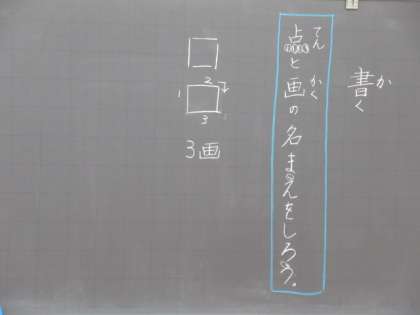 書く
か
点と画の名まえをしろう。
てん
かく
口
1
2
3
3画